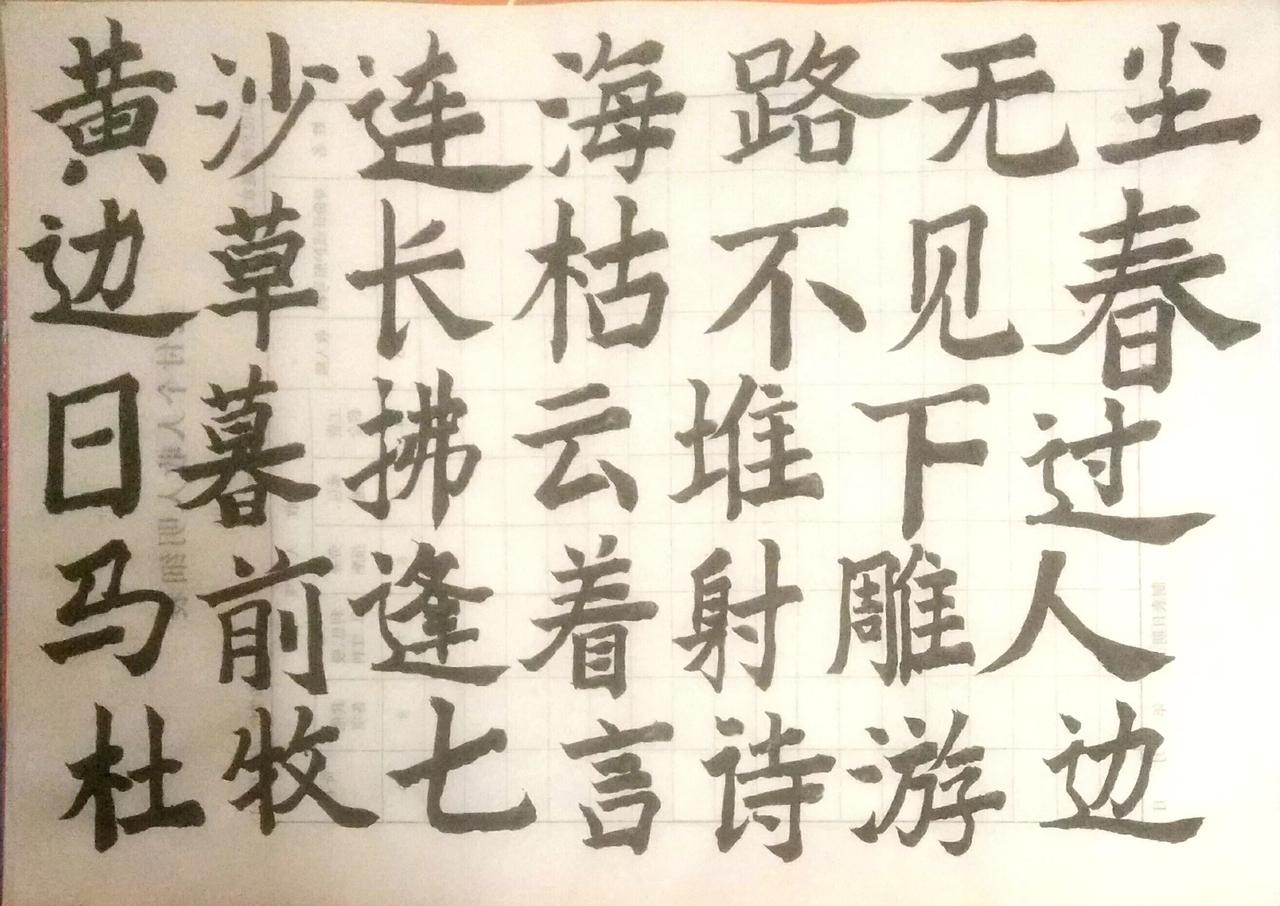 黄沙连海路无尘
边草长枯不见春
日暮拂云堆下过
马前逢着射雕人
杜牧七言诗游边